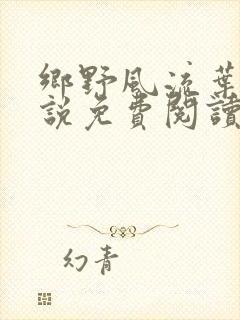 鄉野風流葉
說免費閱讀
幻青